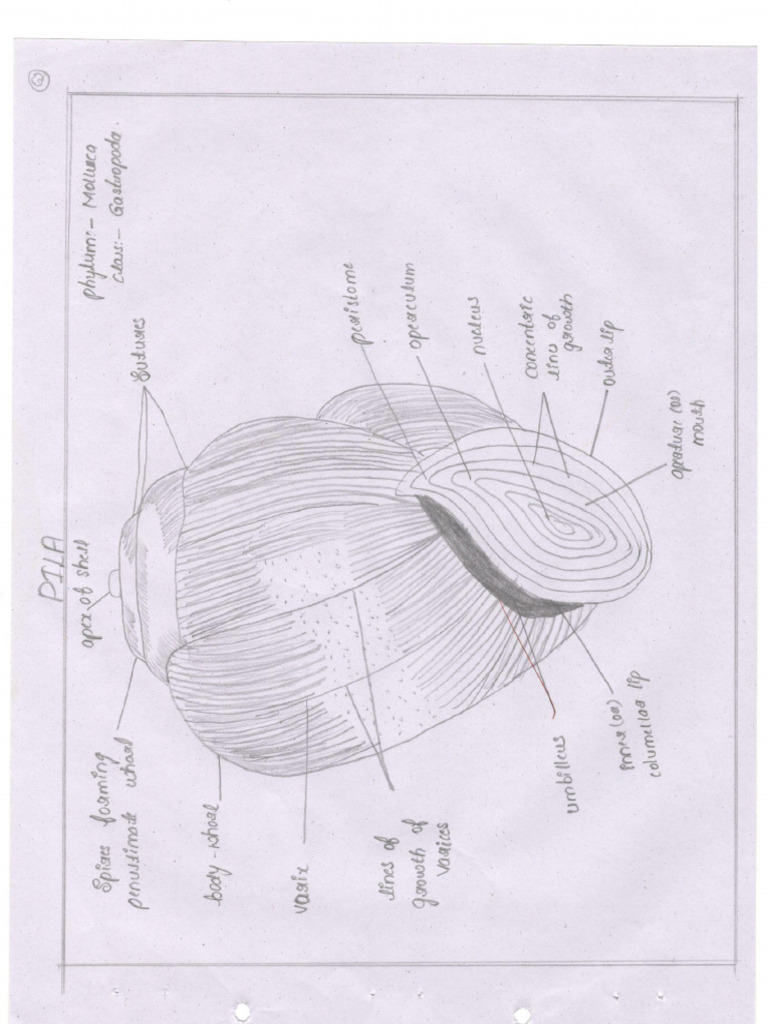 PILA
Phylum:- Mollusca
class:- Gastropoda.
apex of shell
Sutures
Spires forming
penultimate whorl
body-whorl
varix
lines of
growth of
varices
peristome
operculum
nucleus
concentric
lines of
growth
outer lip
aprature (or)
mouth
umbilicus
Inner (or)
columellar lip